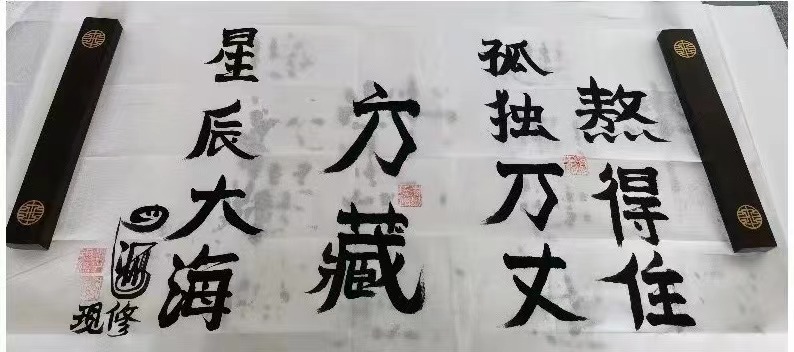 熬得住
孤独万丈
方藏
星辰大海
现修